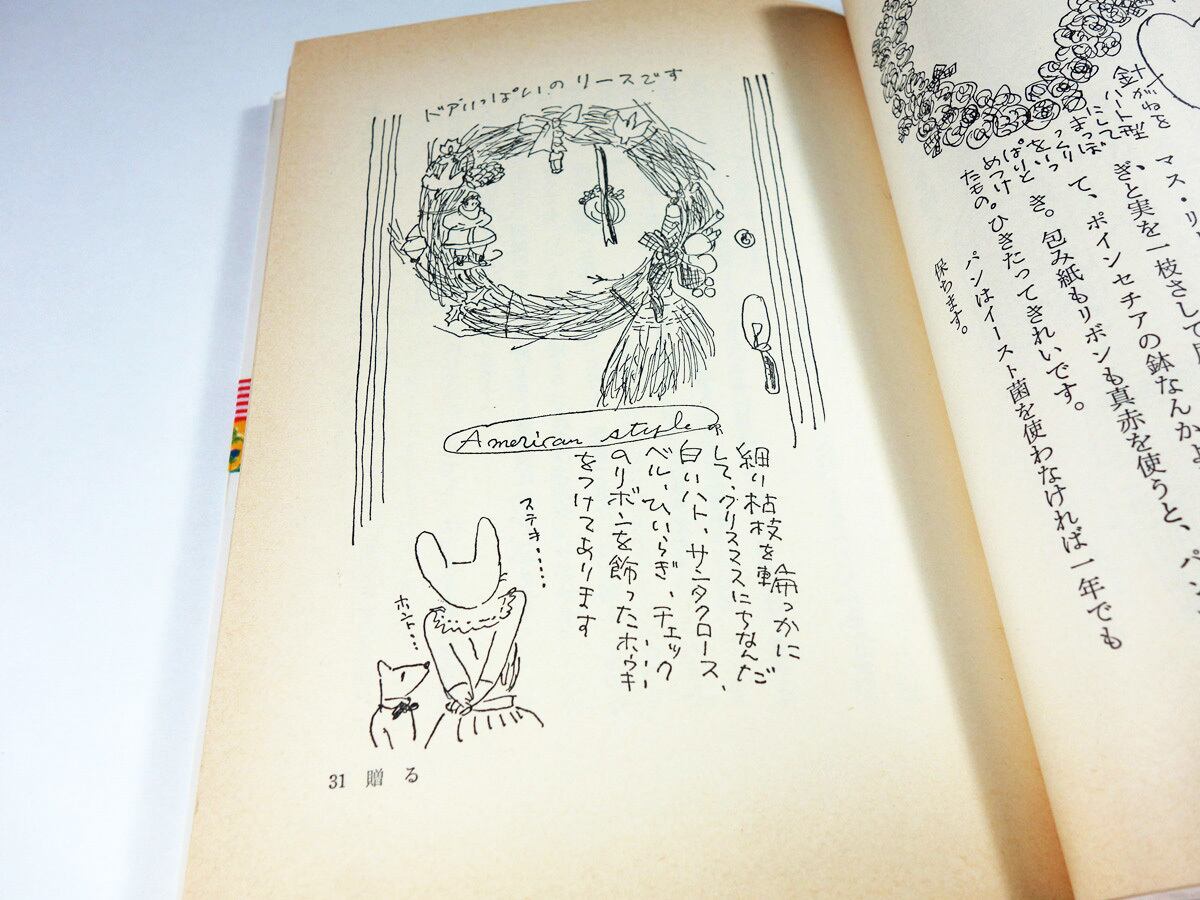 針がねを
ハート型
にして
まつぼ
っくり
をいっ
ぱいと
めつけ
たもの。
マス・リ
ぎと実を一枝さして
て、ポインセチアの鉢なんかよ
き。包み紙もリボンも真赤を使うと、パン
ひきたってきれいです。
パンはイースト菌を使わなければ一年でも
保ちます。
ドアいっぱいのリースです
American style
細い枯枝を輪っかに
して、クリスマスにちなんだ
白いハト、サンタクロース、
ベル、ひいらぎ、チェック
のリボンを飾ったホウキ
をつけてあります
ステキ……
ホント…
31 贈る